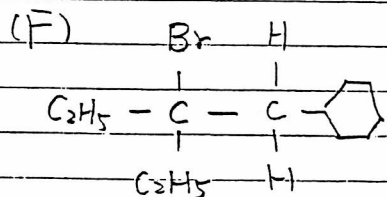 (F)
Br H
C2H5 - C - C -
C2H5 H